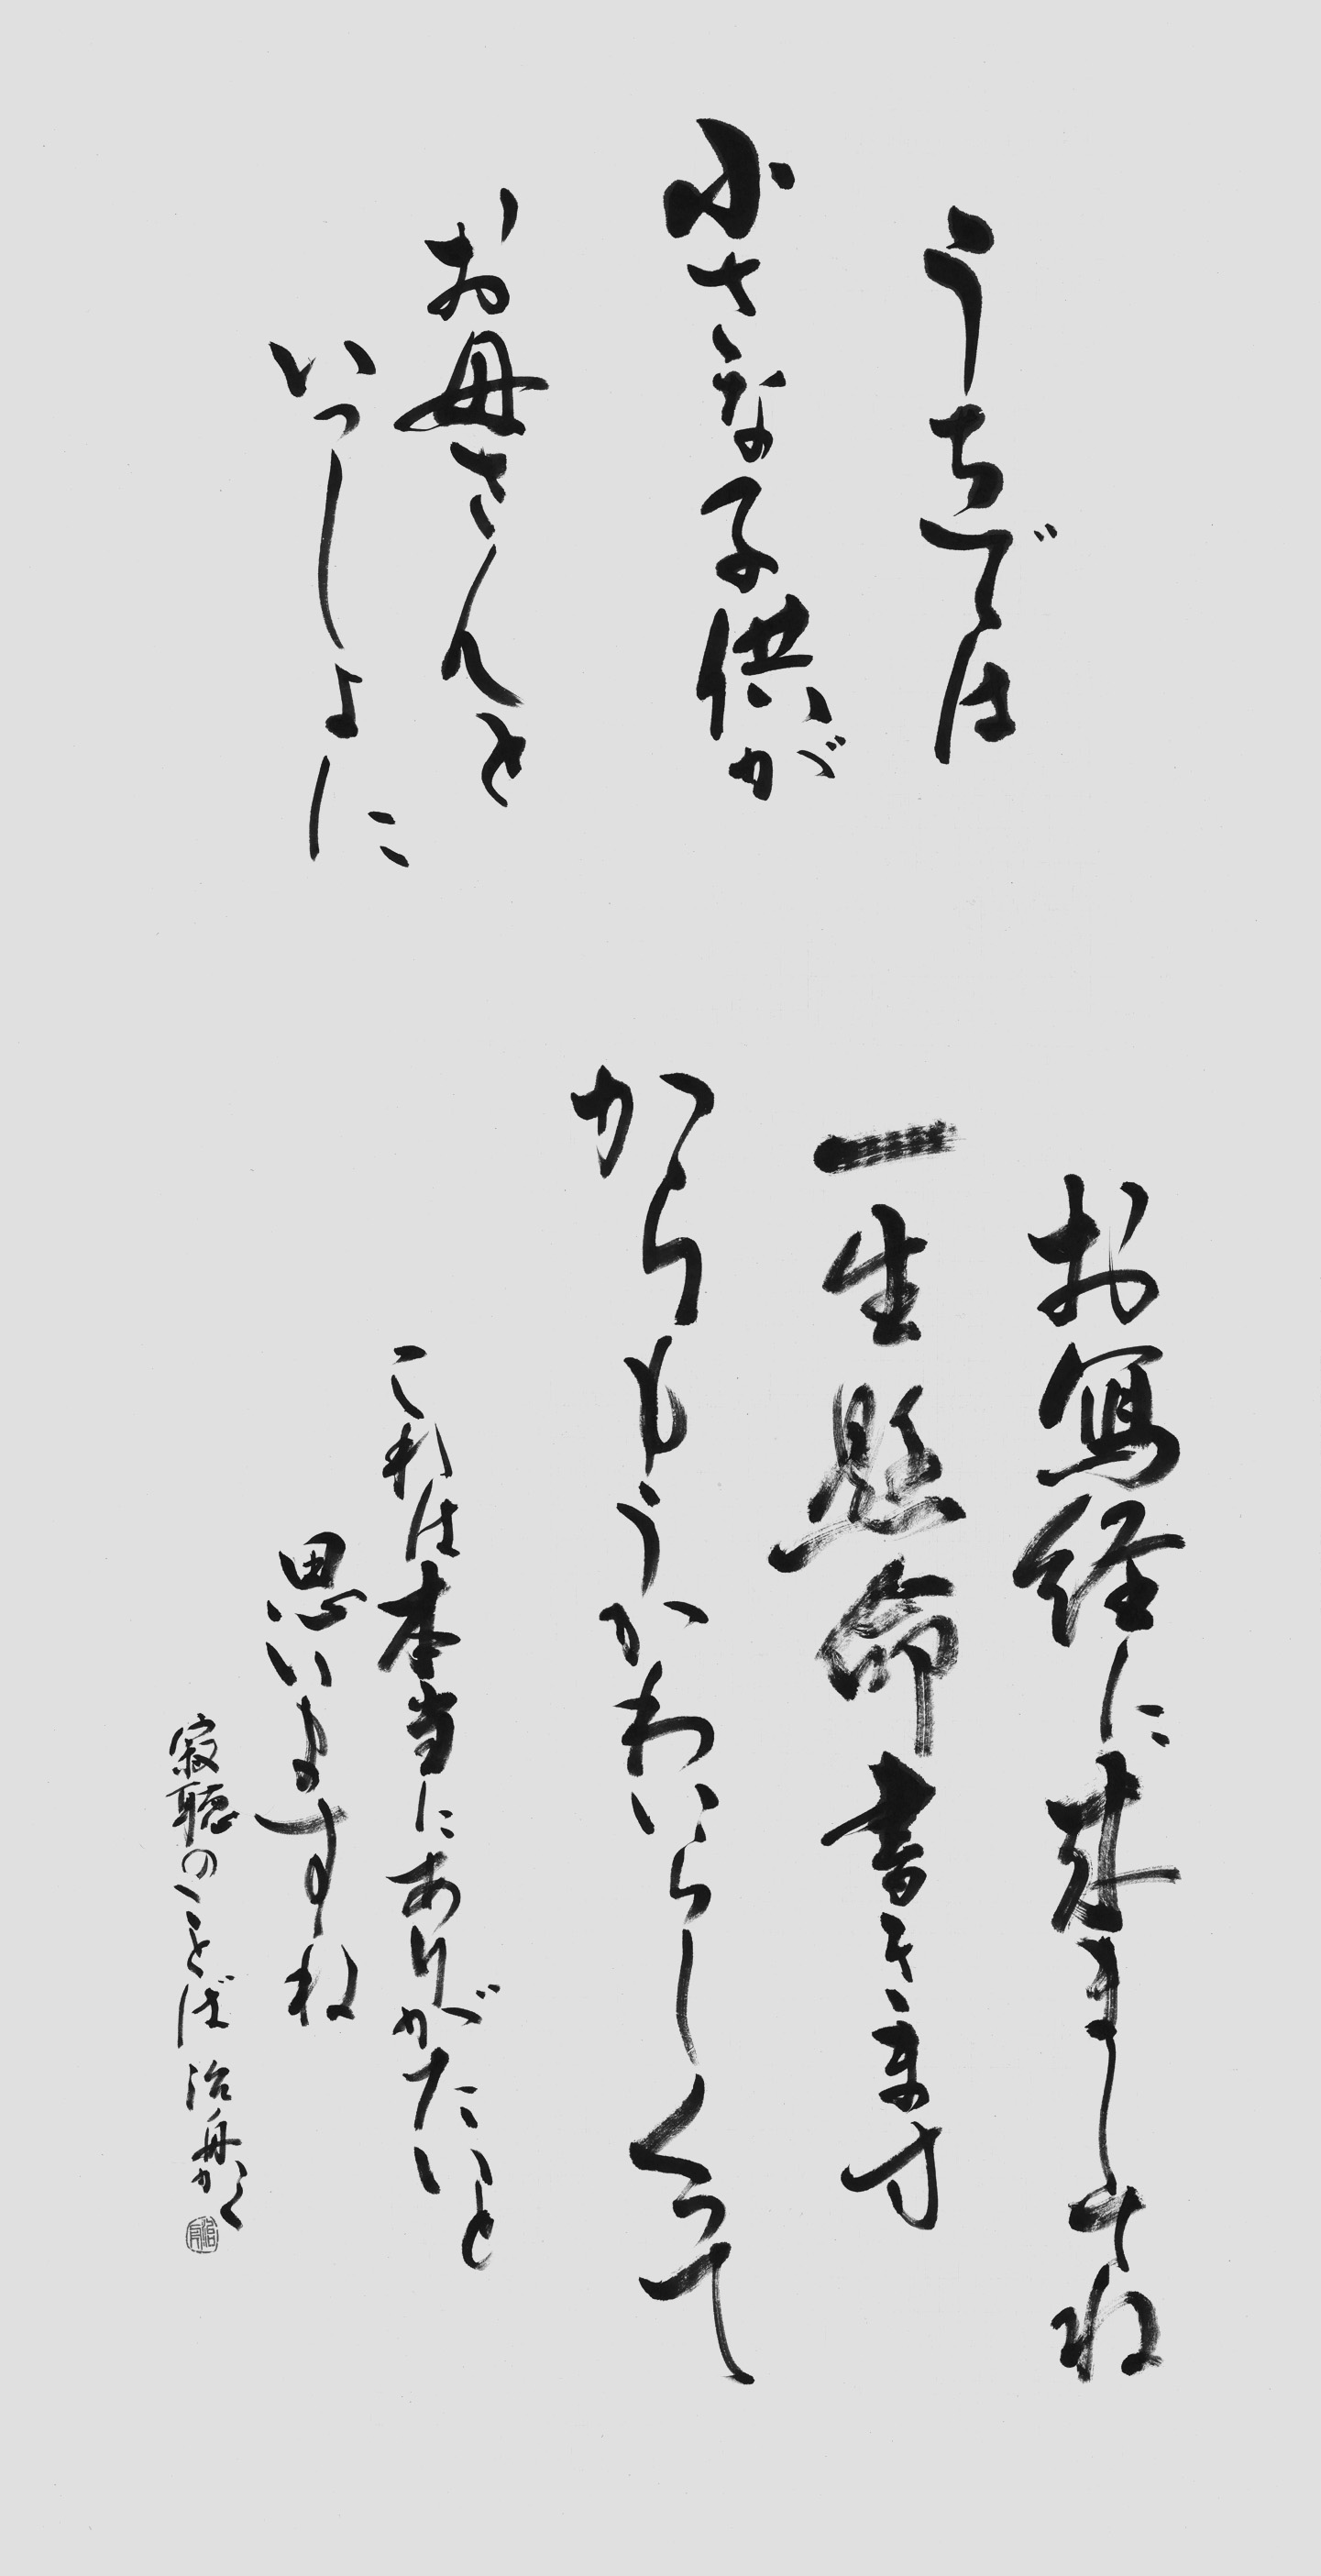 うちでは
小さな子供が
お母さんと
いっしょに
お冩経に来ましてね
一生懸命書きます
からもうかわいらしくって
これは本当にありがたいと
思いますね
寂聴のことば 治舟かく